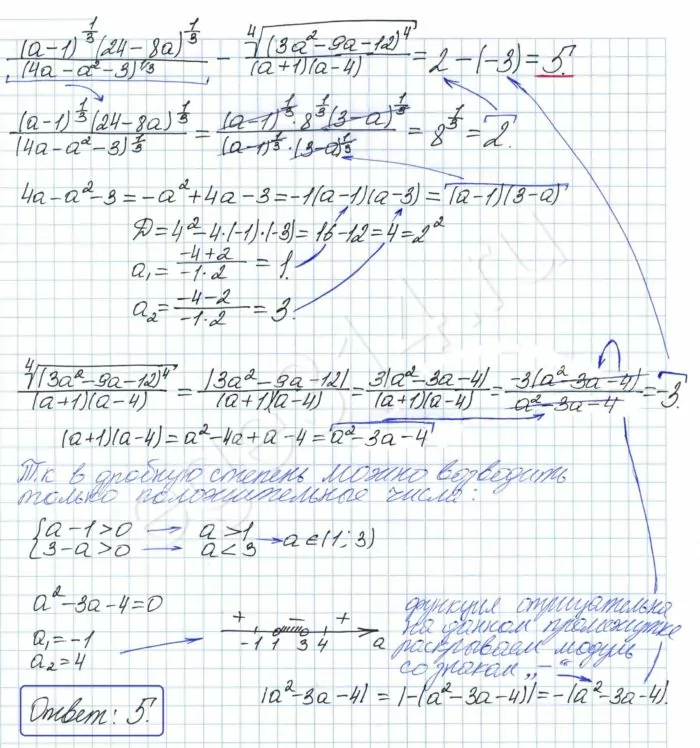 (a-1)^{1/3}(24-8a)^{1/3} / (4a-a²-3)^{1/3} - ⁴√(3a²-9a-12)⁴ / (a+1)(a-4) = 2-(-3) = 5.
(a-1)^{1/3}(24-8a)^{1/3} / (4a-a²-3)^{1/3} = (a-1)^{1/3}·8^{1/3}(3-a)^{1/3} / (a-1)^{1/3}·(3-a)^{1/3} = 8^{1/3} = 2.
4a-a²-3 = -a²+4a-3 = -1(a-1)(a-3) = (a-1)(3-a)
D = 4²-4·(-1)·(-3) = 16-12 = 4 = 2²
a₁ = -4+2 / -1·2 = 1.
a₂ = -4-2 / -1·2 = 3.
⁴√(3a²-9a-12)⁴ / (a+1)(a-4) = |3a²-9a-12| / (a+1)(a-4) = 3|a²-3a-4| / (a+1)(a-4) = -3(a²-3a-4) / a²-3a-4 = -3.
(a+1)(a-4) = a²-4a+a-4 = a²-3a-4
Т.к в дробную степень можно возводить
только положительные числа:
{a-1>0 → a>1
{3-a>0 → a<3 → a∈(1;3)
a²-3a-4=0
a₁=-1
a₂=4
+ - +
-1 1 3 4 a
функция отрицательна
на данном промежутке
раскрываем модуль
со знаком „-“
|a²-3a-4| = |-(a²-3a-4)| = -(a²-3a-4).
Ответ: 5.